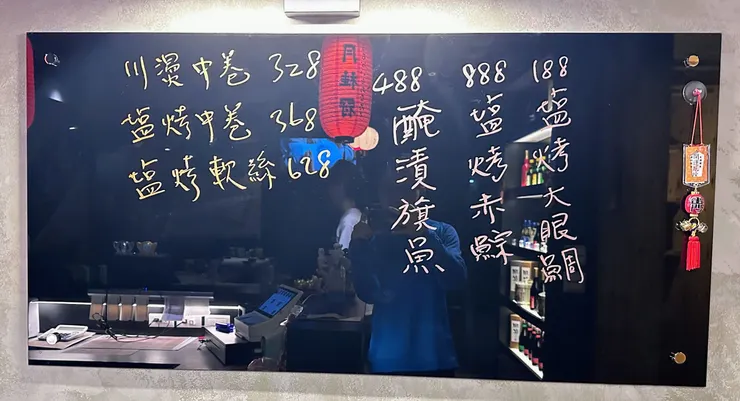 川燙中卷 328
塩烤中卷 368
塩烤軟絲 628
488
醃漬旗魚
888
塩烤赤鯮
188
塩烤大眼鯛